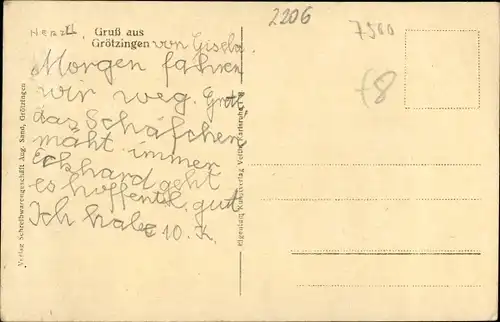 Herzl.
Gruß aus
Grötzingen von Gisela.
Morgen fahren
wir weg.
das Schäfchen
mäht immer
Eckhard geht
es hoffentl. gut
Ich habe 10. K.
2206
7500
f8
Verlag Schreibwarengeschäft Aug. Sand, Grötzingen